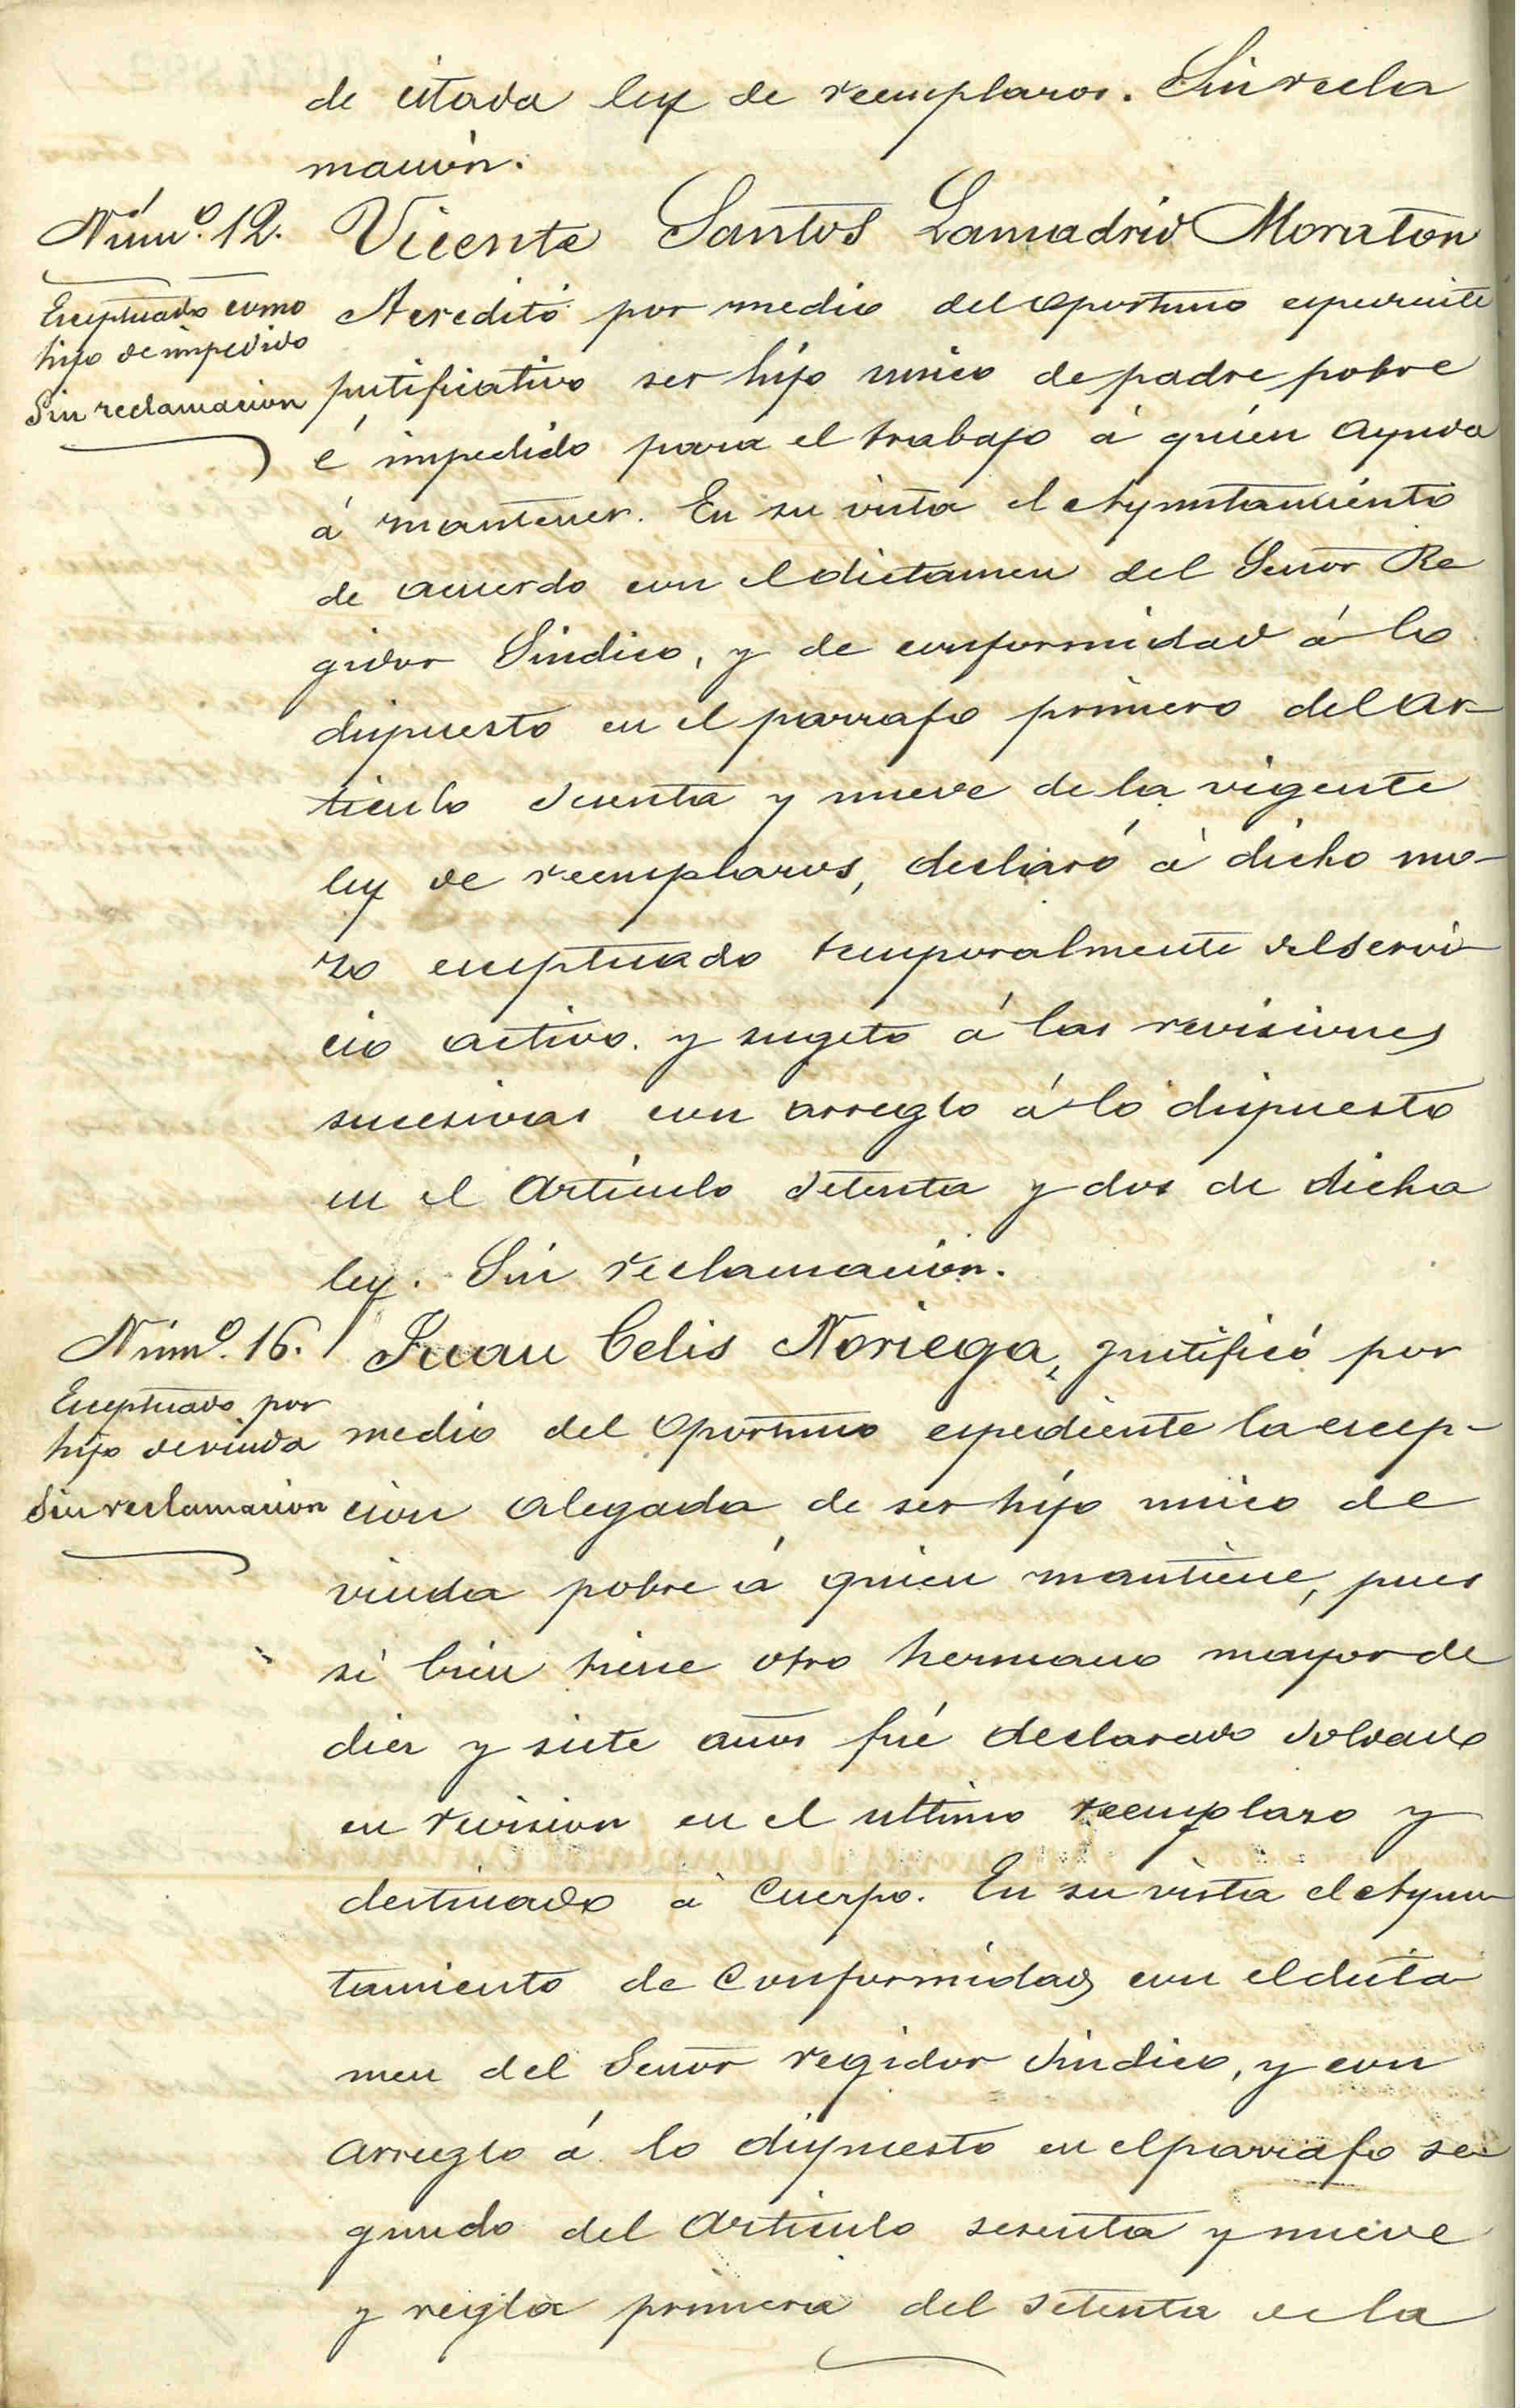 de citada ley de reemplazos. Sin recla
macion.
Núm.º 12. Vicente Santos Lamadrid Moraton
Exceptuado como
hijo de impedido
Sin reclamacion
Acreditó por medio del oportuno espediente
justificativo ser hijo unico de padre pobre
é impedido para el trabajo á quién ayuda
á mantener. En su vista el Ayuntamiento
de acuerdo con el dictamen del Señor Re
gidor Sindico, y de conformidad á lo
dispuesto en el parrafo primero del ar-
ticulo sesenta y nueve de la vigente
ley de reemplazos, declaró á dicho mo-
zo exceptuado temporalmente del servi-
cio activo. y sugeto á las revisiones
sucesivas con arreglo á lo dispuesto
en el Artículo setenta y dos de dicha
ley. Sin reclamación.
Núm.º 16. Juan Celis Noriega, justificó por
Exceptuado por
hijo de viuda
Sin reclamacion
medio del oportuno espediente la escep-
cion alegada de ser hijo unico de
viuda pobre á quien mantiene, pues
si bien tiene otro hermano mayor de
diez y siete años fué declarado soldado
en revision en el ultimo reemplazo y
destinado á Cuerpo. En su vista el Ayun
tamiento de Conformidad con el dicta
men del Señor regidor Sindico, y con
arreglo á lo dispuesto en el parrafo se
gundo del Articulo sesenta y nueve
y regla primera del setenta de la